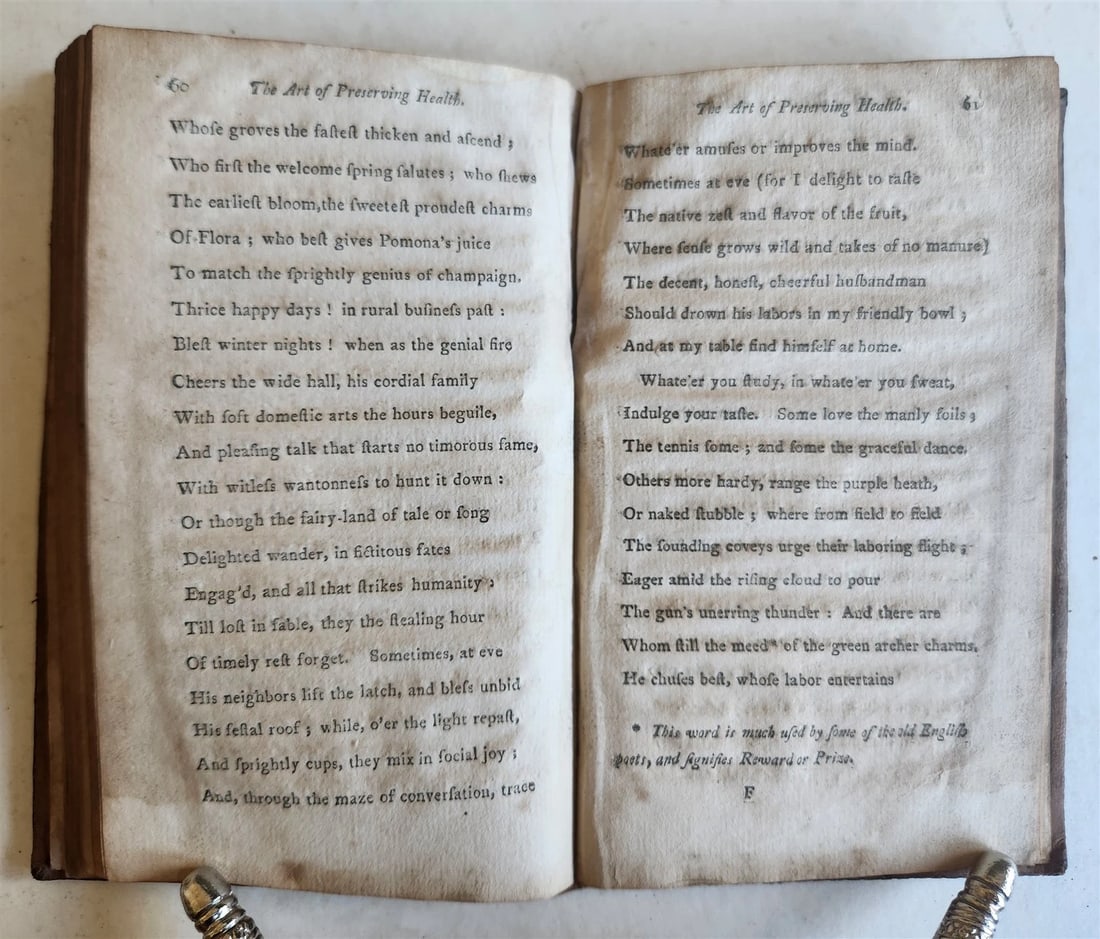 60 The Art of Preserving Health.
Whoſe groves the faſteſt thicken and aſcend ;
Who firſt the welcome ſpring ſalutes ; who ſhews
The earlieſt bloom, the ſweeteſt proudeſt charms
Of Flora ; who beſt gives Pomona's juice
To match the ſprightly genius of champaign.
Thrice happy days ! in rural buſineſs paſt :
Bleſt winter nights ! when as the genial fire
Cheers the wide hall, his cordial family
With ſoft domeſtic arts the hours beguile,
And pleaſing talk that ſtarts no timorous fame,
With witleſs wantonneſs to hunt it down :
Or though the fairy-land of tale or ſong
Delighted wander, in fictitous fates
Engag'd, and all that ſtrikes humanity ;
Till loſt in fable, they the ſtealing hour
Of timely reſt forget. Sometimes, at eve
His neighbors lift the latch, and bleſs unbid
His feſtal roof ; while, o'er the light repaſt,
And ſprightly cups, they mix in ſocial joy ;
And, through the maze of converſation, trace
The Art of Preserving Health. 61
Whate'er amuſes or improves the mind.
Sometimes at eve (for I delight to taſte
The native zeſt and flavor of the fruit,
Where ſenſe grows wild and takes of no manure)
The decent, honeſt, cheerful huſbandman
Should drown his labors in my friendly bowl ;
And at my table find himſelf at home.
Whate'er you ſtudy, in whate'er you ſweat,
Indulge your taſte. Some love the manly foils ;
The tennis ſome ; and ſome the graceful dance.
Others more hardy, range the purple heath,
Or naked ſtubble ; where from field to field
The ſounding coveys urge their laboring flight ;
Eager amid the riſing cloud to pour
The gun's unerring thunder : And there are
Whom ſtill the meed* of the green archer charms.
He chuſes beſt, whoſe labor entertains
* This word is much uſed by ſome of the old Engliſh
poets, and ſignifies Reward or Prize.
F